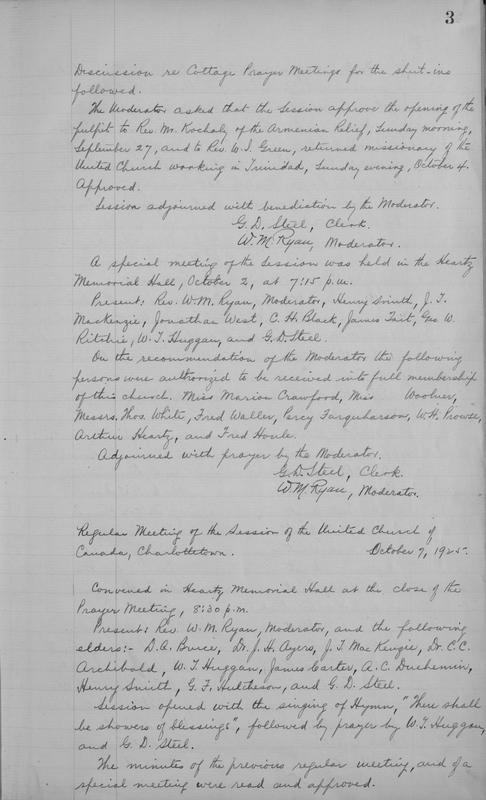 3
Discussion re Cottage Prayer Meetings for the shut-ins
followed.
The Moderator asked that the Session approve the opening of the
pulpit to Rev. Mr. Kochaly of the Armenian Relief, Sunday morning,
September 27, and to Rev. W. I. Green, returned missionary of the
United Church working in Trinidad, Sunday evening, October 4.
Approved.
Session adjourned with benediction by the Moderator.
G. D. Steel, Clerk.
W. M. Ryan, Moderator.
A special meeting of the Session was held in the Heartz
Memorial Hall, October 2, at 7:15 p.m.
Present: Rev. W. M. Ryan, Moderator, Henry Smith, J. T.
Mackenzie, Jonathan West, C. H. Black, James Tait, Geo. W.
Ritchie, W. T. Huggan, and G. D. Steel.
On the recommendation of the Moderator the following
persons were authorized to be received into full membership
of this church. Miss Marion Crawford, Miss Woolner,
Messrs. Thos. White, Fred Waller, Percy Farquharson, W. H. Prowse,
Arthur Heartz, and Fred Houle.
Adjourned with prayer by the Moderator.
G. D. Steel, Clerk.
W. M. Ryan, Moderator.
Regular Meeting of the Session of the United Church of
Canada, Charlottetown. October 7, 1925.
Convened in Heartz Memorial Hall at the close of the
Prayer Meeting, 8:30 p.m.
Present: Rev. W. M. Ryan, Moderator, and the following
elders:- D. A. Bruce, Dr. J. H. Ayers, J. T. MacKenzie, Dr. C. C.
Archibald, W. T. Huggan, James Carter, A. C. Duchemin,
Henry Smith, G. F. Hutcheson, and G. D. Steel.
Session opened with the singing of Hymn, "There shall
be showers of blessings", followed by prayer by W. T. Huggan,
and G. D. Steel.
The minutes of the previous regular meeting, and of a
special meeting were read and approved.